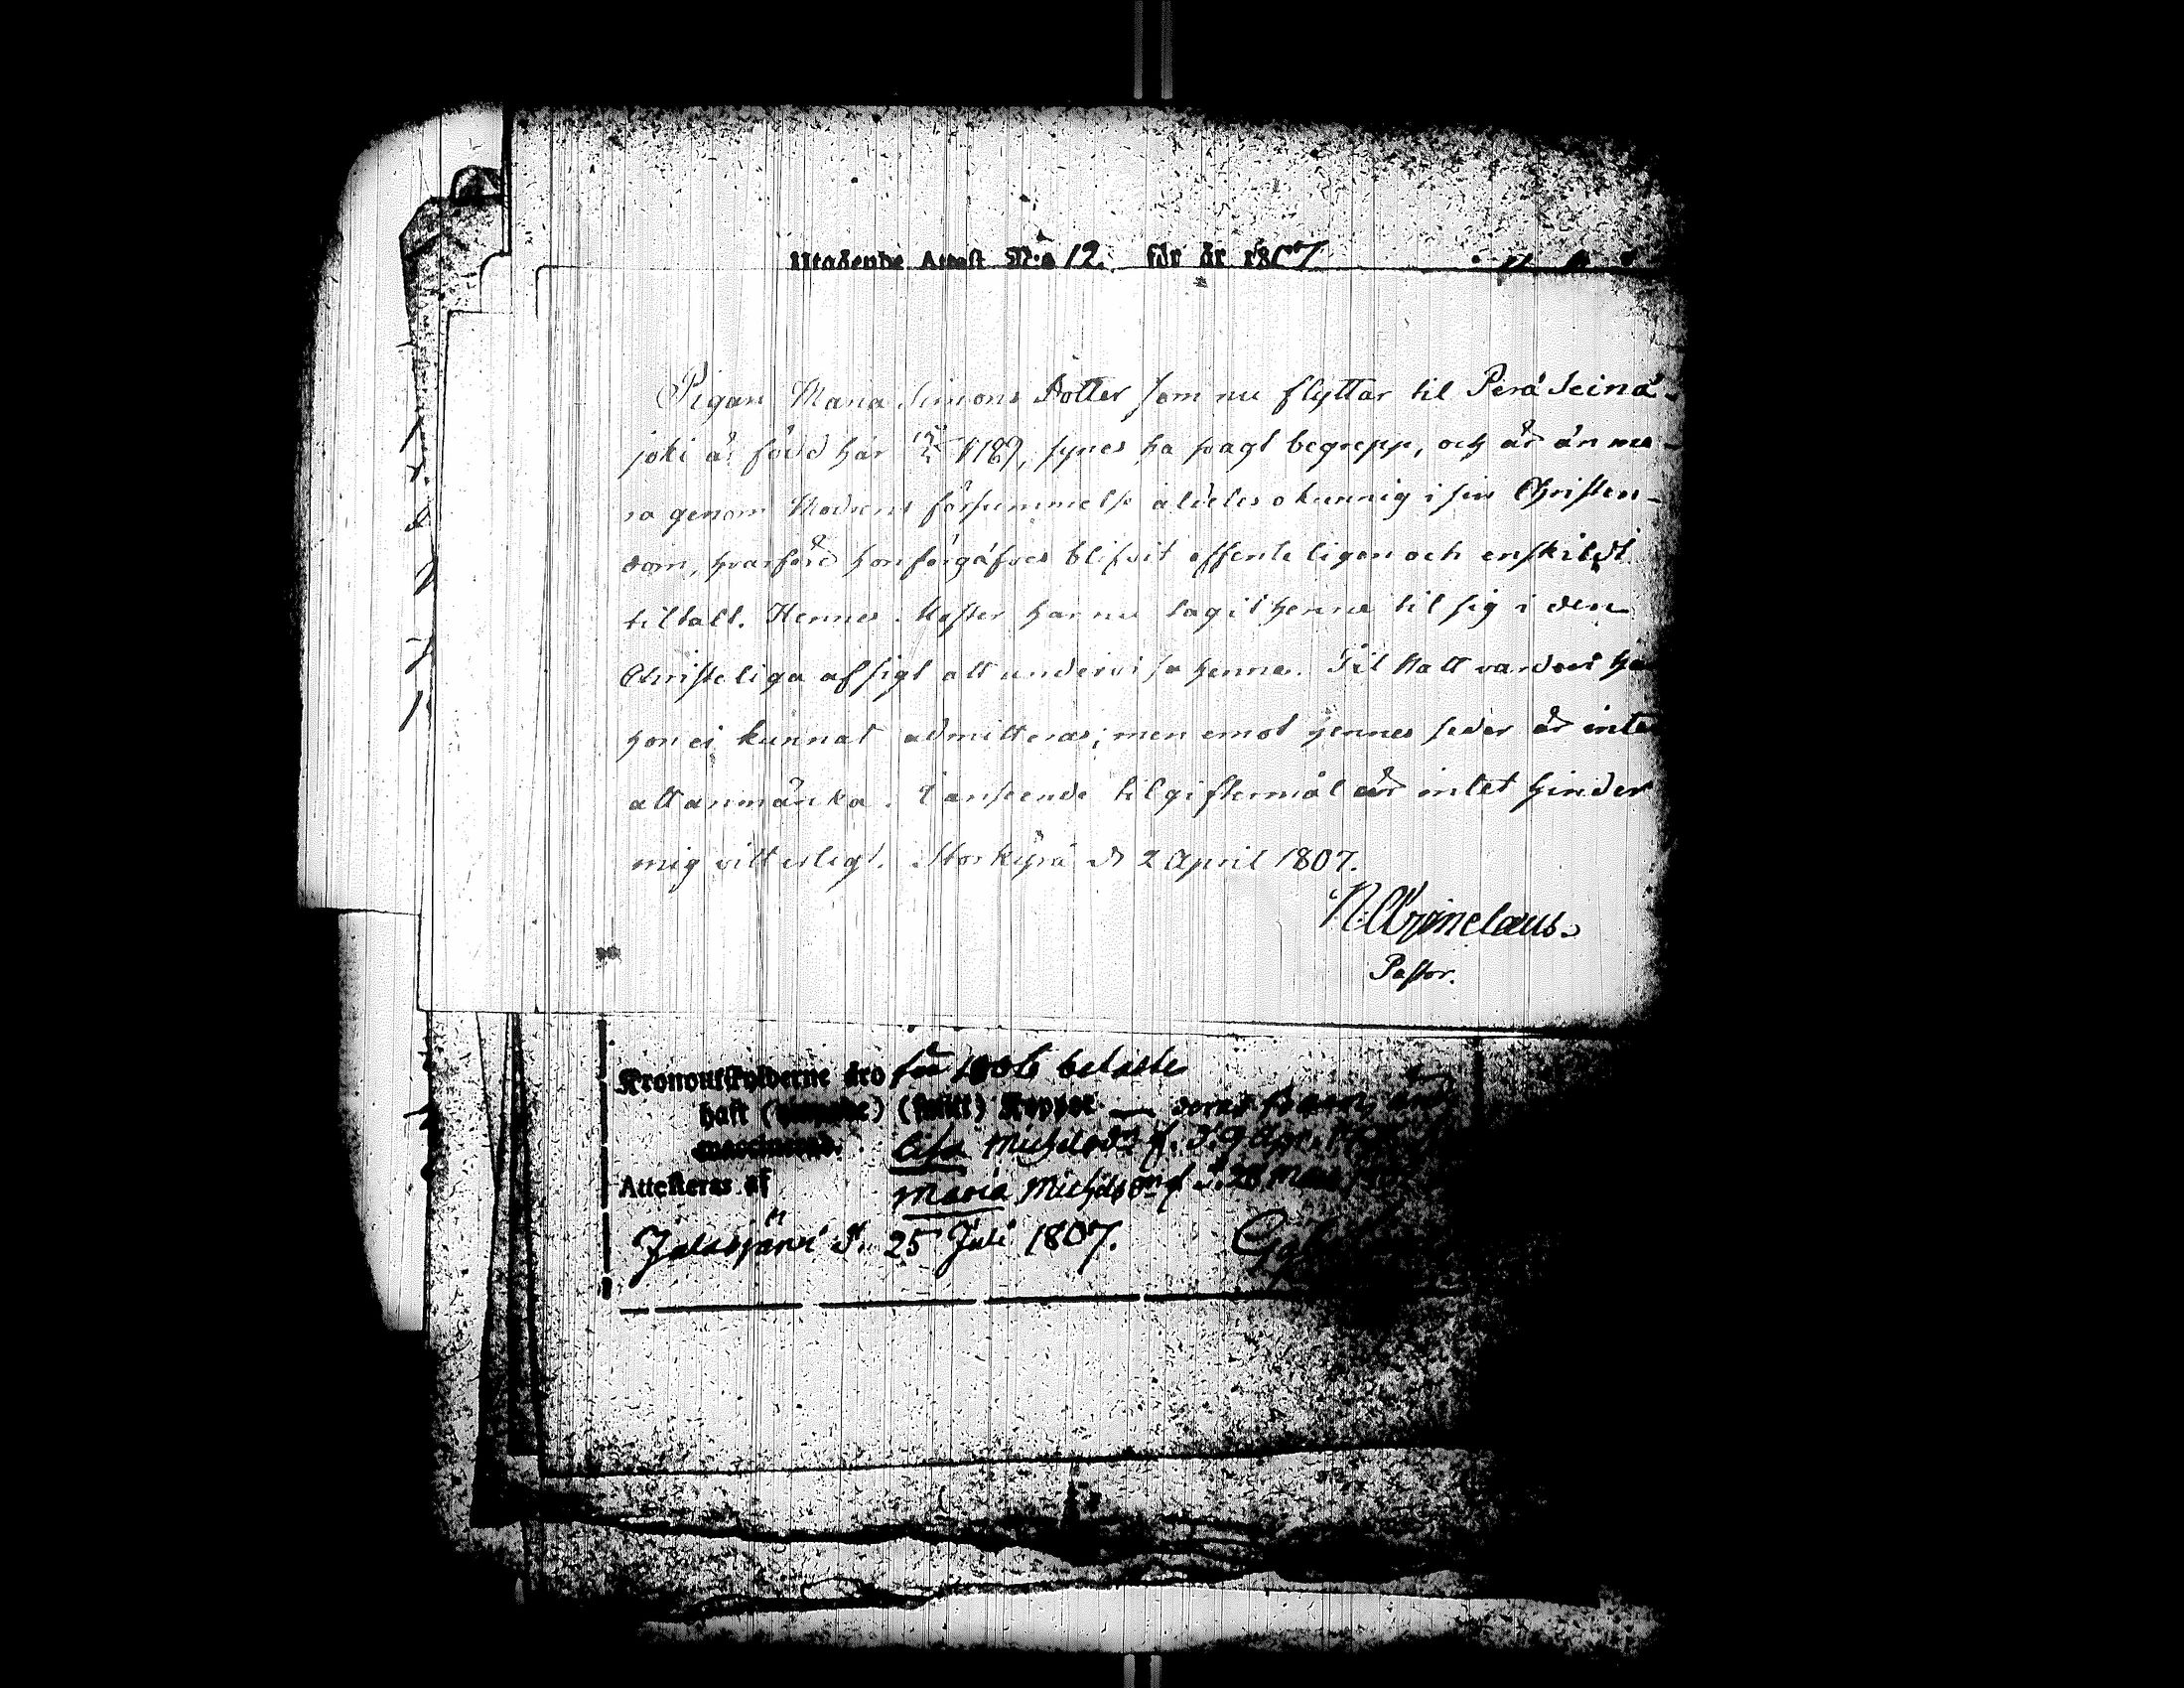 Utgående Attest N:o 12. för år 1807
Pigan Maria Simons Dotter som nu flyttar til Perä Seinä-
joki är född här 1789, synes ha svagt begrepp, och är än me-
ra genom Modrens försummelse aldeles okunnig i sin Christen-
dom, hvarföre hon förgäfves blifvit offenteligen och enskildt
tiltalt. Hennes Moster har nu tagit henne til sig i den
Christeliga afsigt att undervisa henne. Til Nattvarden har
hon ei kunnat admitteras; men emot hennes seder är inte
att anmärka. I anseende til giftermål är intet hinder
mig vitterligt. Storkyrå d 2 April 1807.
Pastor.
Kronoutskylderne äro för 1806 betalte
haft Koppor deras barn
Lisa Michelsd:r f. d. 9 Apr.
Attesteras af Maria Michelsd:r f. d. 28
Jalasjärvi d. 25 Juli 1807.